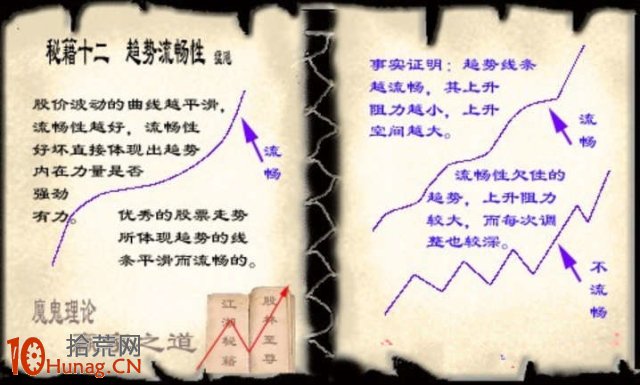 秘籍十二 趋势流畅性
股价波动的曲线越平滑，
流畅性越好，流畅性
好坏直接体现出趋势
内在力量是否
强劲
有力。
优秀的股票走势
所体现趋势的线
条平滑而流畅的。
流畅
魔鬼理论
之道
江湖秘籍
股林至尊
10
拾荒网
Hunag.CN
事实证明：趋势线条
越流畅，其上升
阻力越小，上升
空间越大。
流畅
流畅性欠佳的
趋势，上升阻力
较大，而每次调
整也较深。
不流畅